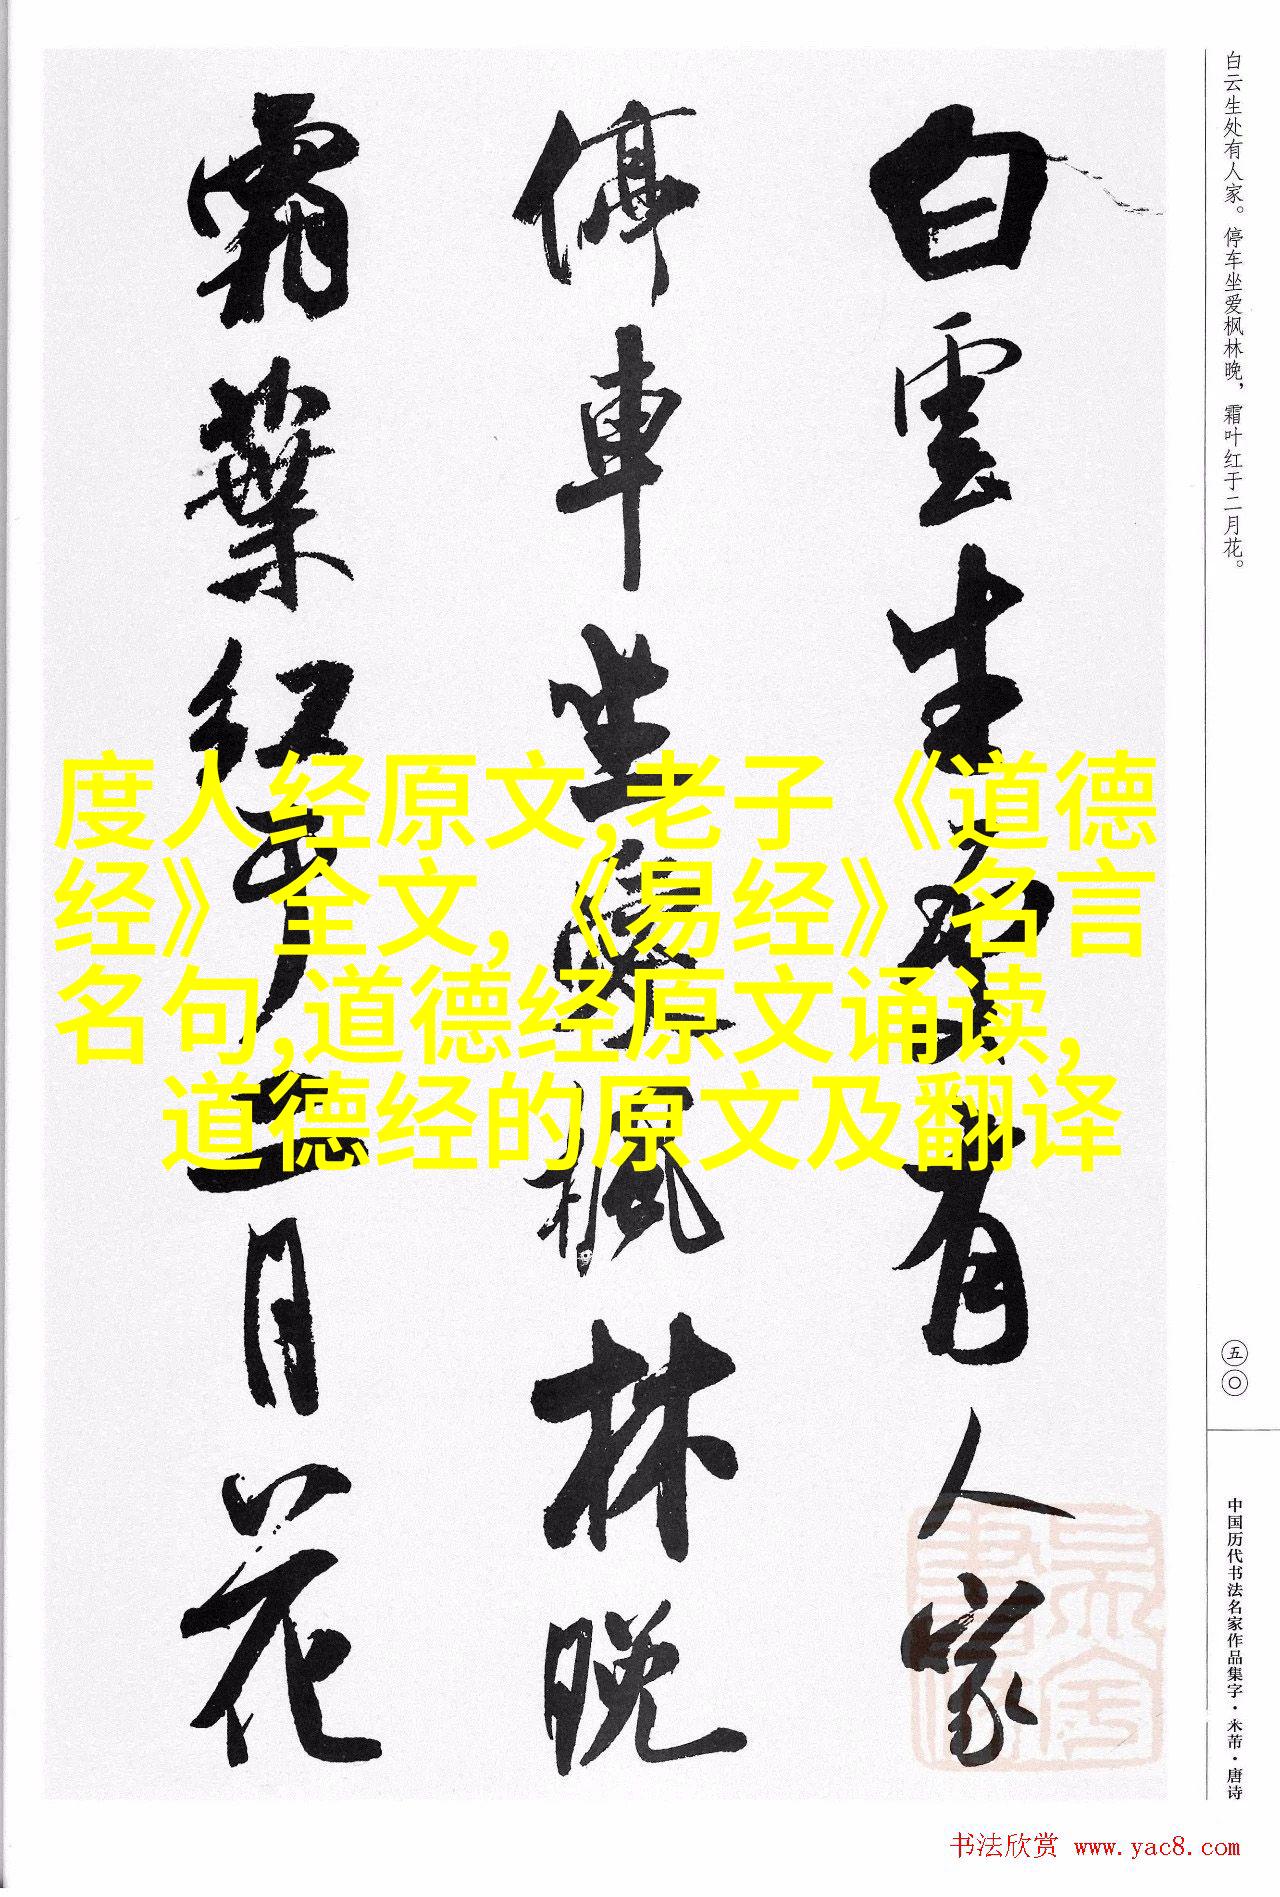 白云生处有人家。停车坐爱枫林晚，霜叶红于二月花。
五〇
中国历代书法名家作品集字·米芾·唐诗
白雲生處有人家
停車坐愛楓林晚
霜葉紅於二月花
度人经原文,老子《道德
经》全文,《易经》名言
名句,道德经原文诵读,
道德经的原文及翻译
书法欣赏 www.yac8.com